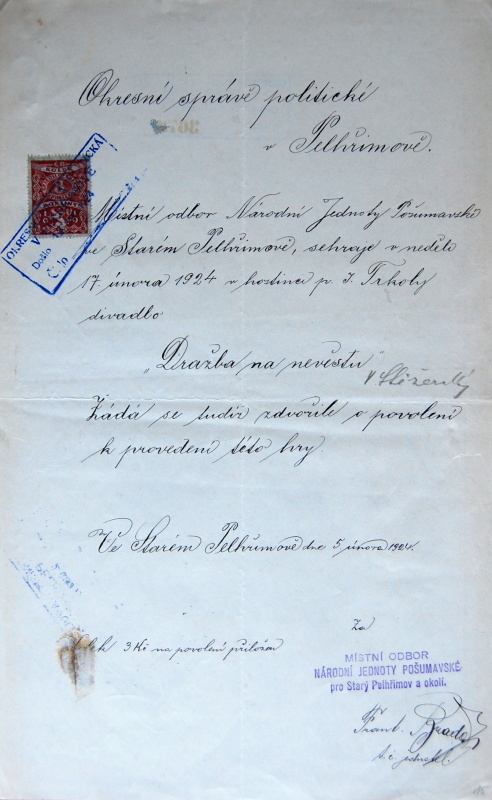 Okresní správě politické
v Pelhřimově.
Místní odbor Národní Jednoty Pošumavské
ve Starém Pelhřimově, sehraje v neděli
17. února 1924 v hostinci p. J. Trkoly
divadlo
„Dražba na nevěstu"
Žádá se tudíž zdvořile o povolení
k provedení této hry.
Ve Starém Pelhřimově dne 5 února 1924.
Za
3 Kč na povolení přiložen
MÍSTNÍ ODBOR
NÁRODNÍ JEDNOTY POŠUMAVSKÉ
pro Starý Pelhřimov a okolí.
Frant.
t. č. jednatel.